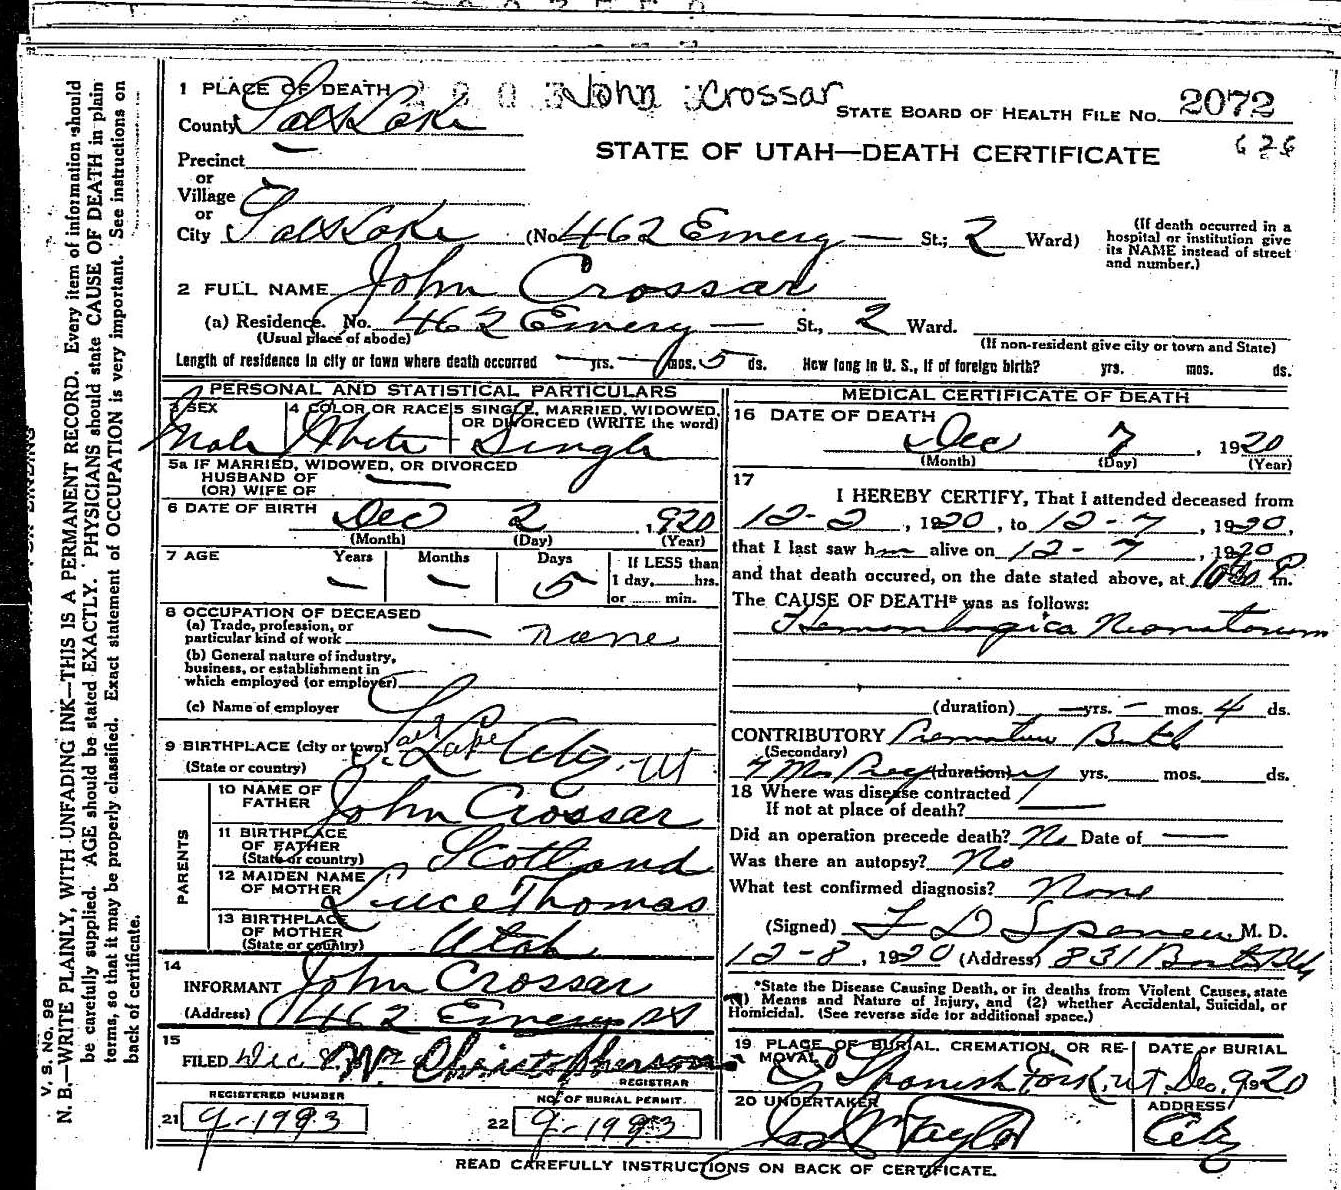 1 PLACE OF DEATH John Crossar STATE BOARD OF HEALTH FILE NO. 2072
County Salt Lake
STATE OF UTAH—DEATH CERTIFICATE 626
Precinct —
or
Village
or
City Salt Lake (No. 462 Emery — St.; 2 Ward) (If death occurred in a hospital or institution give its NAME instead of street and number.)
2 FULL NAME John Crossar
(a) Residence. No. 462 Emery — St., 2 Ward.
(Usual place of abode) (If non-resident give city or town and State)
Length of residence in city or town where death occurred — yrs. — mos. 5 ds. How long in U. S., if of foreign birth? yrs. mos. ds.
PERSONAL AND STATISTICAL PARTICULARS
3 SEX Male
4 COLOR OR RACE White
5 SINGLE, MARRIED, WIDOWED, OR DIVORCED (WRITE the word) Single
5a IF MARRIED, WIDOWED, OR DIVORCED
HUSBAND OF
(OR) WIFE OF —
6 DATE OF BIRTH Dec 2 1920
(Month) (Day) (Year)
7 AGE Years Months Days If LESS than
— — 5 1 day, hrs.
or min.
8 OCCUPATION OF DECEASED
(a) Trade, profession, or
particular kind of work — none
(b) General nature of industry,
business, or establishment in
which employed (or employer)
(c) Name of employer
9 BIRTHPLACE (city or town) Salt Lake City, Ut
(State or country)
PARENTS
10 NAME OF FATHER John Crossar
11 BIRTHPLACE OF FATHER (State or country) Scotland
12 MAIDEN NAME OF MOTHER Luce Thomas
13 BIRTHPLACE OF MOTHER (State or country) Utah
14
INFORMANT John Crossar
(Address) 462 Emery St
15
FILED Dec 8 Wm Christopherson
REGISTRAR
REGISTERED NUMBER NO. OF BURIAL PERMIT.
21 9-1993 22 9-1993
MEDICAL CERTIFICATE OF DEATH
16 DATE OF DEATH
Dec 7, 1920
(Month) (Day) (Year)
17
I HEREBY CERTIFY, That I attended deceased from
12-2, 1920, to 12-7, 1920,
that I last saw him alive on 12-7, 1920
and that death occured, on the date stated above, at P m.
The CAUSE OF DEATH* was as follows:
Neonatorum
(duration) — yrs. — mos. 4 ds.
CONTRIBUTORY Premature Birth
(Secondary)
7 Mo Preg (duration) yrs. mos. ds.
18 Where was disease contracted
If not at place of death?
Did an operation precede death? No Date of —
Was there an autopsy? No
What test confirmed diagnosis? None
(Signed) M. D.
12-8, 1920 (Address) 831
*State the Disease Causing Death, or in deaths from Violent Causes, state
(1) Means and Nature of Injury, and (2) whether Accidental, Suicidal, or
Homicidal. (See reverse side for additional space.)
19 PLACE OF BURIAL, CREMATION, OR REMOVAL DATE OF BURIAL
Spanish Fork, Ut. Dec. 9 1920
20 UNDERTAKER ADDRESS
Taylor City
READ CAREFULLY INSTRUCTIONS ON BACK OF CERTIFICATE.
V. S. No. 98
N. B.—WRITE PLAINLY, WITH UNFADING INK—THIS IS A PERMANENT RECORD. Every item of information should
be carefully supplied. AGE should be stated EXACTLY. PHYSICIANS should state CAUSE OF DEATH in plain
terms, so that it may be properly classified. Exact statement of OCCUPATION is very important. See instructions on
back of certificate.